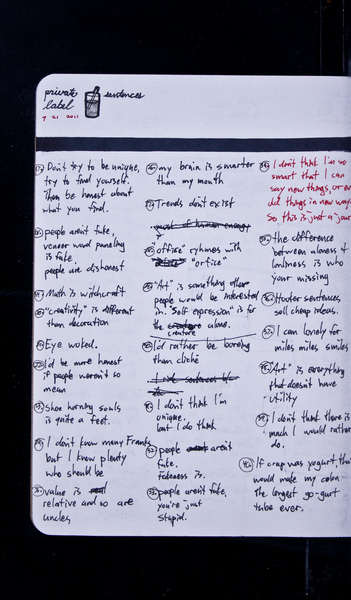 private
label
sentences
7 21 2011
Don't try to be unique,
try to find yourself.
Then be honest about
what you find.
people aren't fake,
veneer wood paneling
is fake,
people are dishonest
Math is witchcraft
"creativity" is different
than decoration
Eye woked.
I'd be more honest
if people weren't so
mean
Shoe horning souls
is quite a feet.
I don't know many Franks
but I know plenty
who should be
value is
relative and so are
uncles
my brain is smarter
than my mouth
Trends don't exist
office rhymes with
"orfice"
"Art" is something other
people would be interested
in. "Self expression" is for
the alone.
creature
I'd rather be boring
than cliché
I don't think I'm
unique.
but I do think
people aren't
fake.
Fakeness is.
people aren't fake,
you're just
stupid.
I don't think I'm so
smart that I can
say new things, or even
old things in new way
So this is just a jour
the difference
between aloness &
lonliness is who
your missing
Hotter sentences,
sell cheap ideas.
I can lonely for
miles miles smiles
"Art" is everything
that doesn't have
utility
I don't think there is
much I would rather
do.
If crap was yogurt, tha
would make my colon
the longest go-gurt
tube ever.